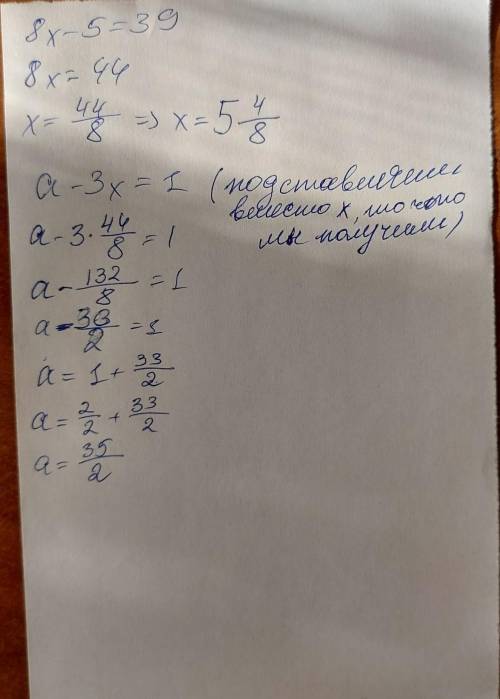 8x - 5 = 39
8x = 44
x = 44/8 => x = 5 4/8
a - 3x = 1 (подставляем
вместо x, то что
мы получаем)
a - 3 · 44/8 = 1
a - 132/8 = 1
a - 33/2 = 1
a = 1 + 33/2
a = 2/2 + 33/2
a = 35/2